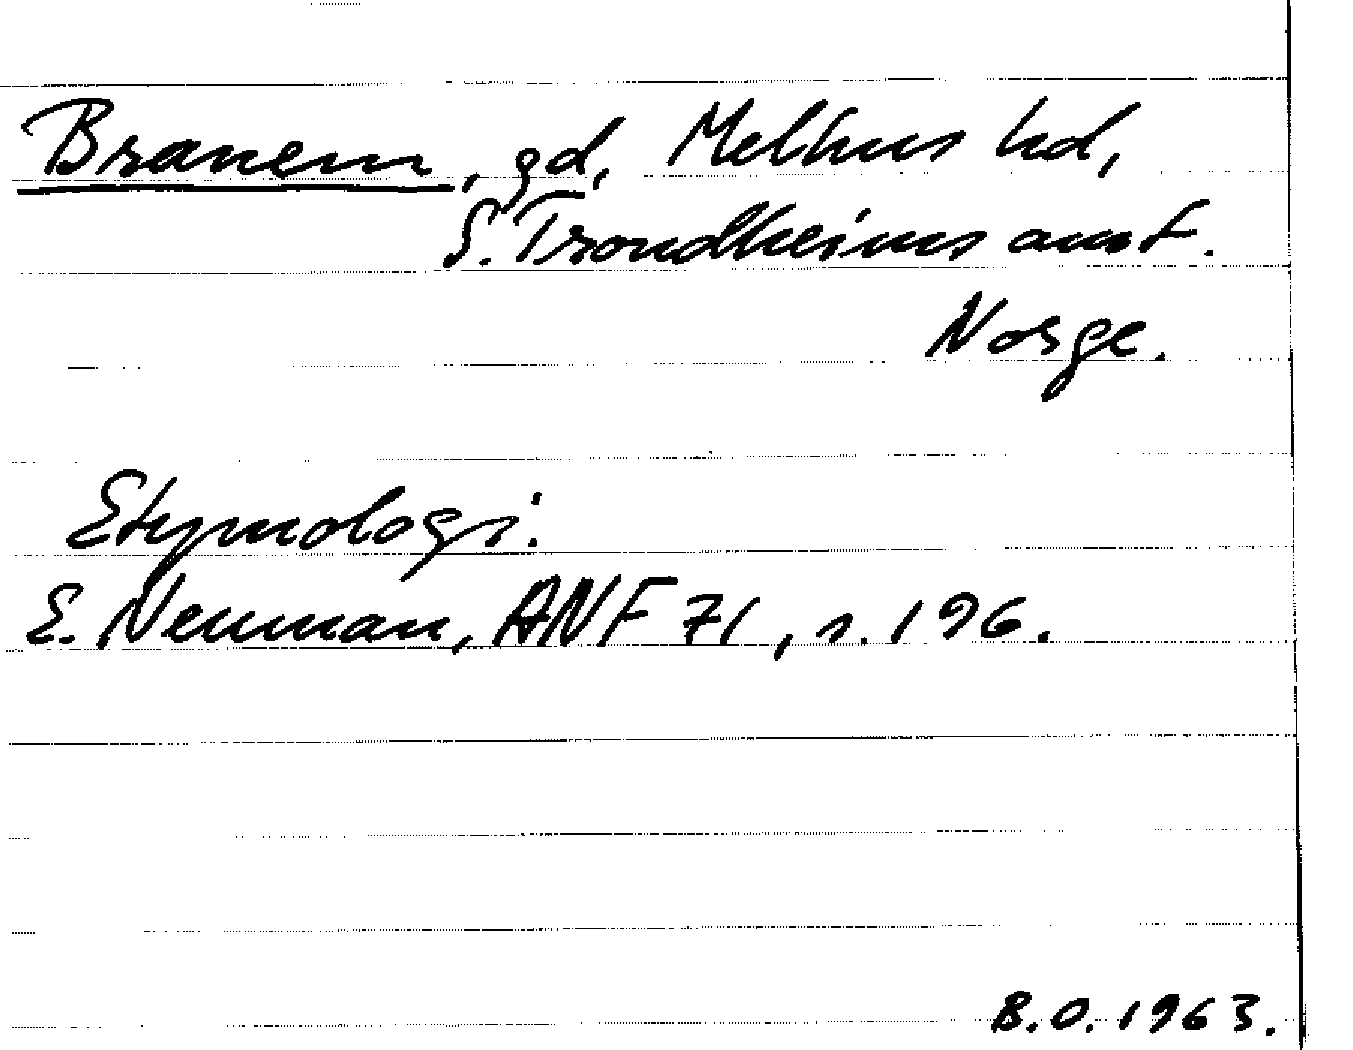 Branem, gd, Melhus hd,
S. Trondheims amt.
Norge.
Etymologi:
E. Neuman, ANF 71, s. 196.
B.O. 1963.